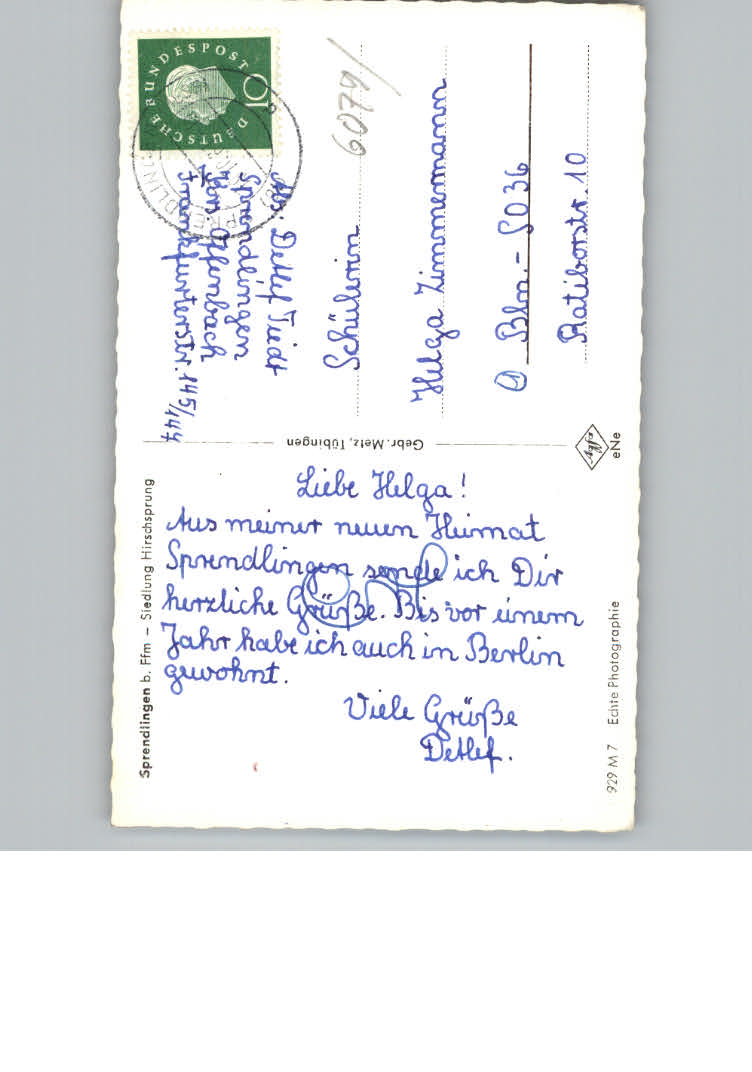 DEUTSCHE BUNDESPOST
10
SPRENDLINGEN
6079/
Abs: Detlef Tiedt
Sprendlingen
Krs. Offenbach
Frankfurterstr. 145/147
Schülerin
Helga Zimmermann
① Bln.- SO 36
Ratiborstr. 10
Gebr. Metz, Tübingen
Agfa
eNe
Sprendlingen b. Ffm – Siedlung Hirschsprung
Liebe Helga!
Aus meiner neuen Heimat
Sprendlingen sende ich Dir
herzliche Grüße. Bis vor einem
Jahr habe ich auch in Berlin
gewohnt.
Viele Grüße
Detlef.
929 M 7 Echte Photographie